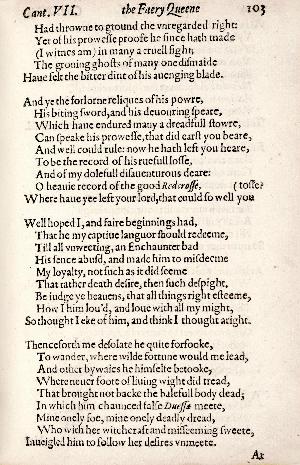 Cant. VII. the Faery Queene 103
Had throwne to ground the vnregarded right:
Yet of his prowesse proofe he since hath made
(I witnes am) in many a cruell fight;
The groning ghosts of many one dismaide
Haue felt the bitter dint of his auenging blade.
And ye the forlorne reliques of his powre,
His biting sword, and his deuouring speare,
Which haue endured many a dreadfull stowre,
Can speake his prowesse, that did earst you beare,
And well could rule: now he hath left you heare,
To be the record of his ruefull losse,
And of my dolefull disauenturous deare:
O heauie record of the good Redcrosse, (tosse?
Where haue yee left your lord, that could so well you
Well hoped I, and faire beginnings had,
That he my captiue languor should redeeme,
Till all vnweeting, an Enchaunter bad
His sence abusd, and made him to misdeeme
My loyalty, not such as it did seeme
That rather death desire, then such despight,
Be iudge ye heauens, that all things right esteeme,
How I him lou'd, and loue with all my might,
So thought I eke of him, and think I thought aright.
Thenceforth me desolate he quite forsooke,
To wander, where wilde fortune would me lead,
And other bywaies he himselfe betooke,
Where neuer foote of liuing wight did tread,
That brought not backe the balefull body dead;
In which him chaunced false Duessa meete,
Mine onely foe, mine onely deadly dread,
Who with her witchcraft and misseeming sweete,
Inueigled him to follow her desires vnmeete.
At